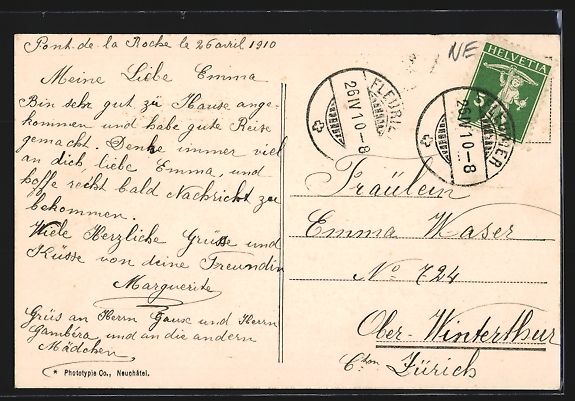 Pont-de-la Roche le 26 avril 1910
Meine Liebe Emma
Bin sehr gut zu Hause ange-
kommen und habe gute Reise
gemacht. Denke immer viel
an dich liebe Emma, und
hoffe recht bald Nachricht zu
bekommen.
Viele Herzliche Grüsse und
Küsse von deine Freundin
Marguerite
Grüs an Herrn Gause und Herrn
Gambéra, und an die andern
Mädchen
* Phototypie Co., Neuchâtel.
NE
HELVETIA
5
FLEURIER
26 IV 10-8
FLEURIER
26 IV 10-8
Fräulein
Emma Waser
No 724
Ober-Winterthur
Cton Zürich